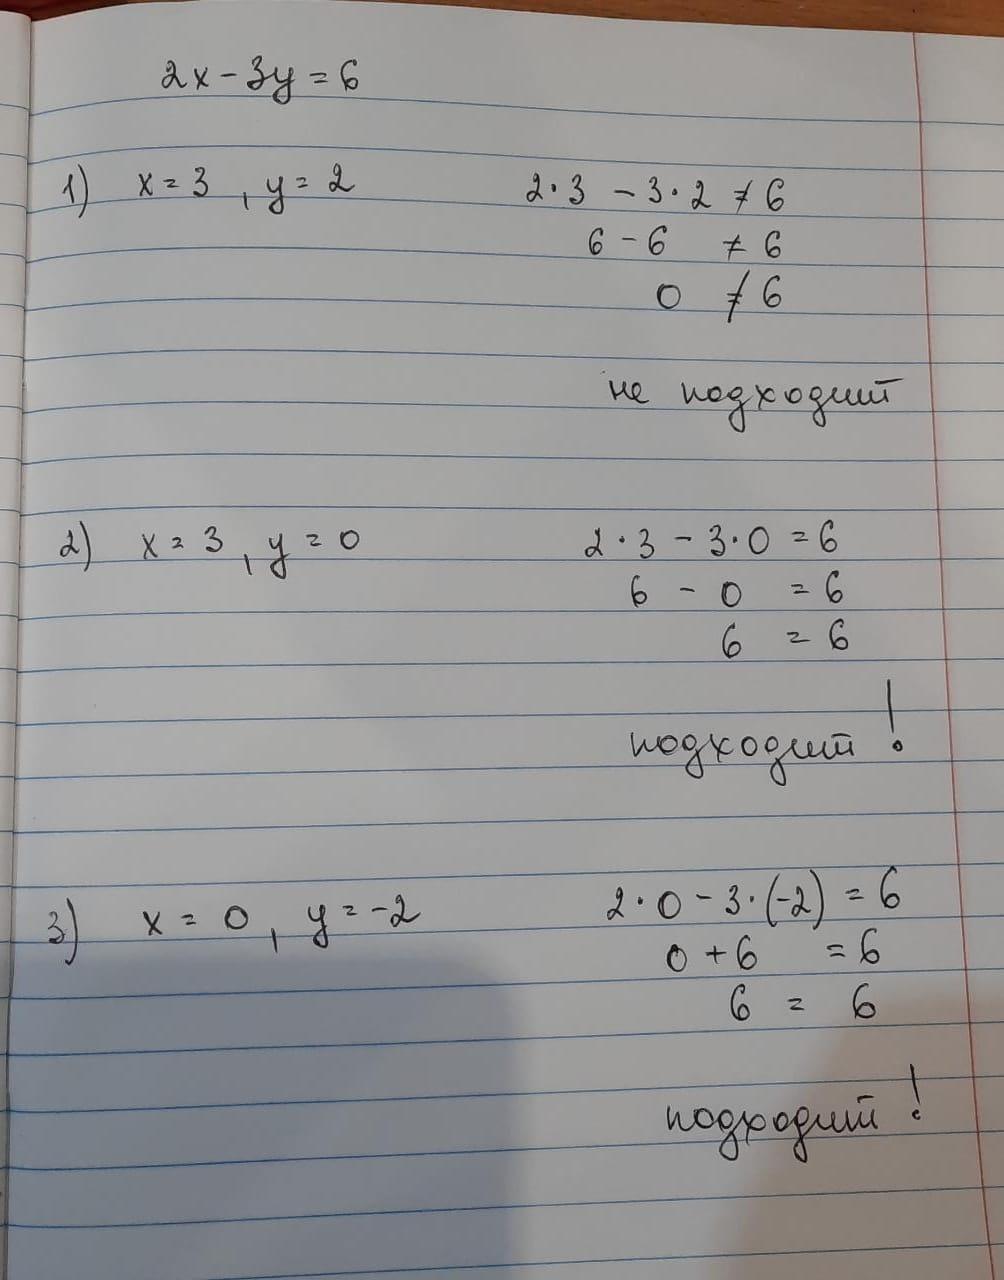 2x - 3y = 6
1) x = 3, y = 2 2·3 - 3·2 ≠ 6
6 - 6 ≠ 6
0 ≠ 6
не подходит
2) x = 3, y = 0 2·3 - 3·0 = 6
6 - 0 = 6
6 = 6
подходит!
3) x = 0, y = -2 2·0 - 3·(-2) = 6
0 + 6 = 6
6 = 6
подходит!